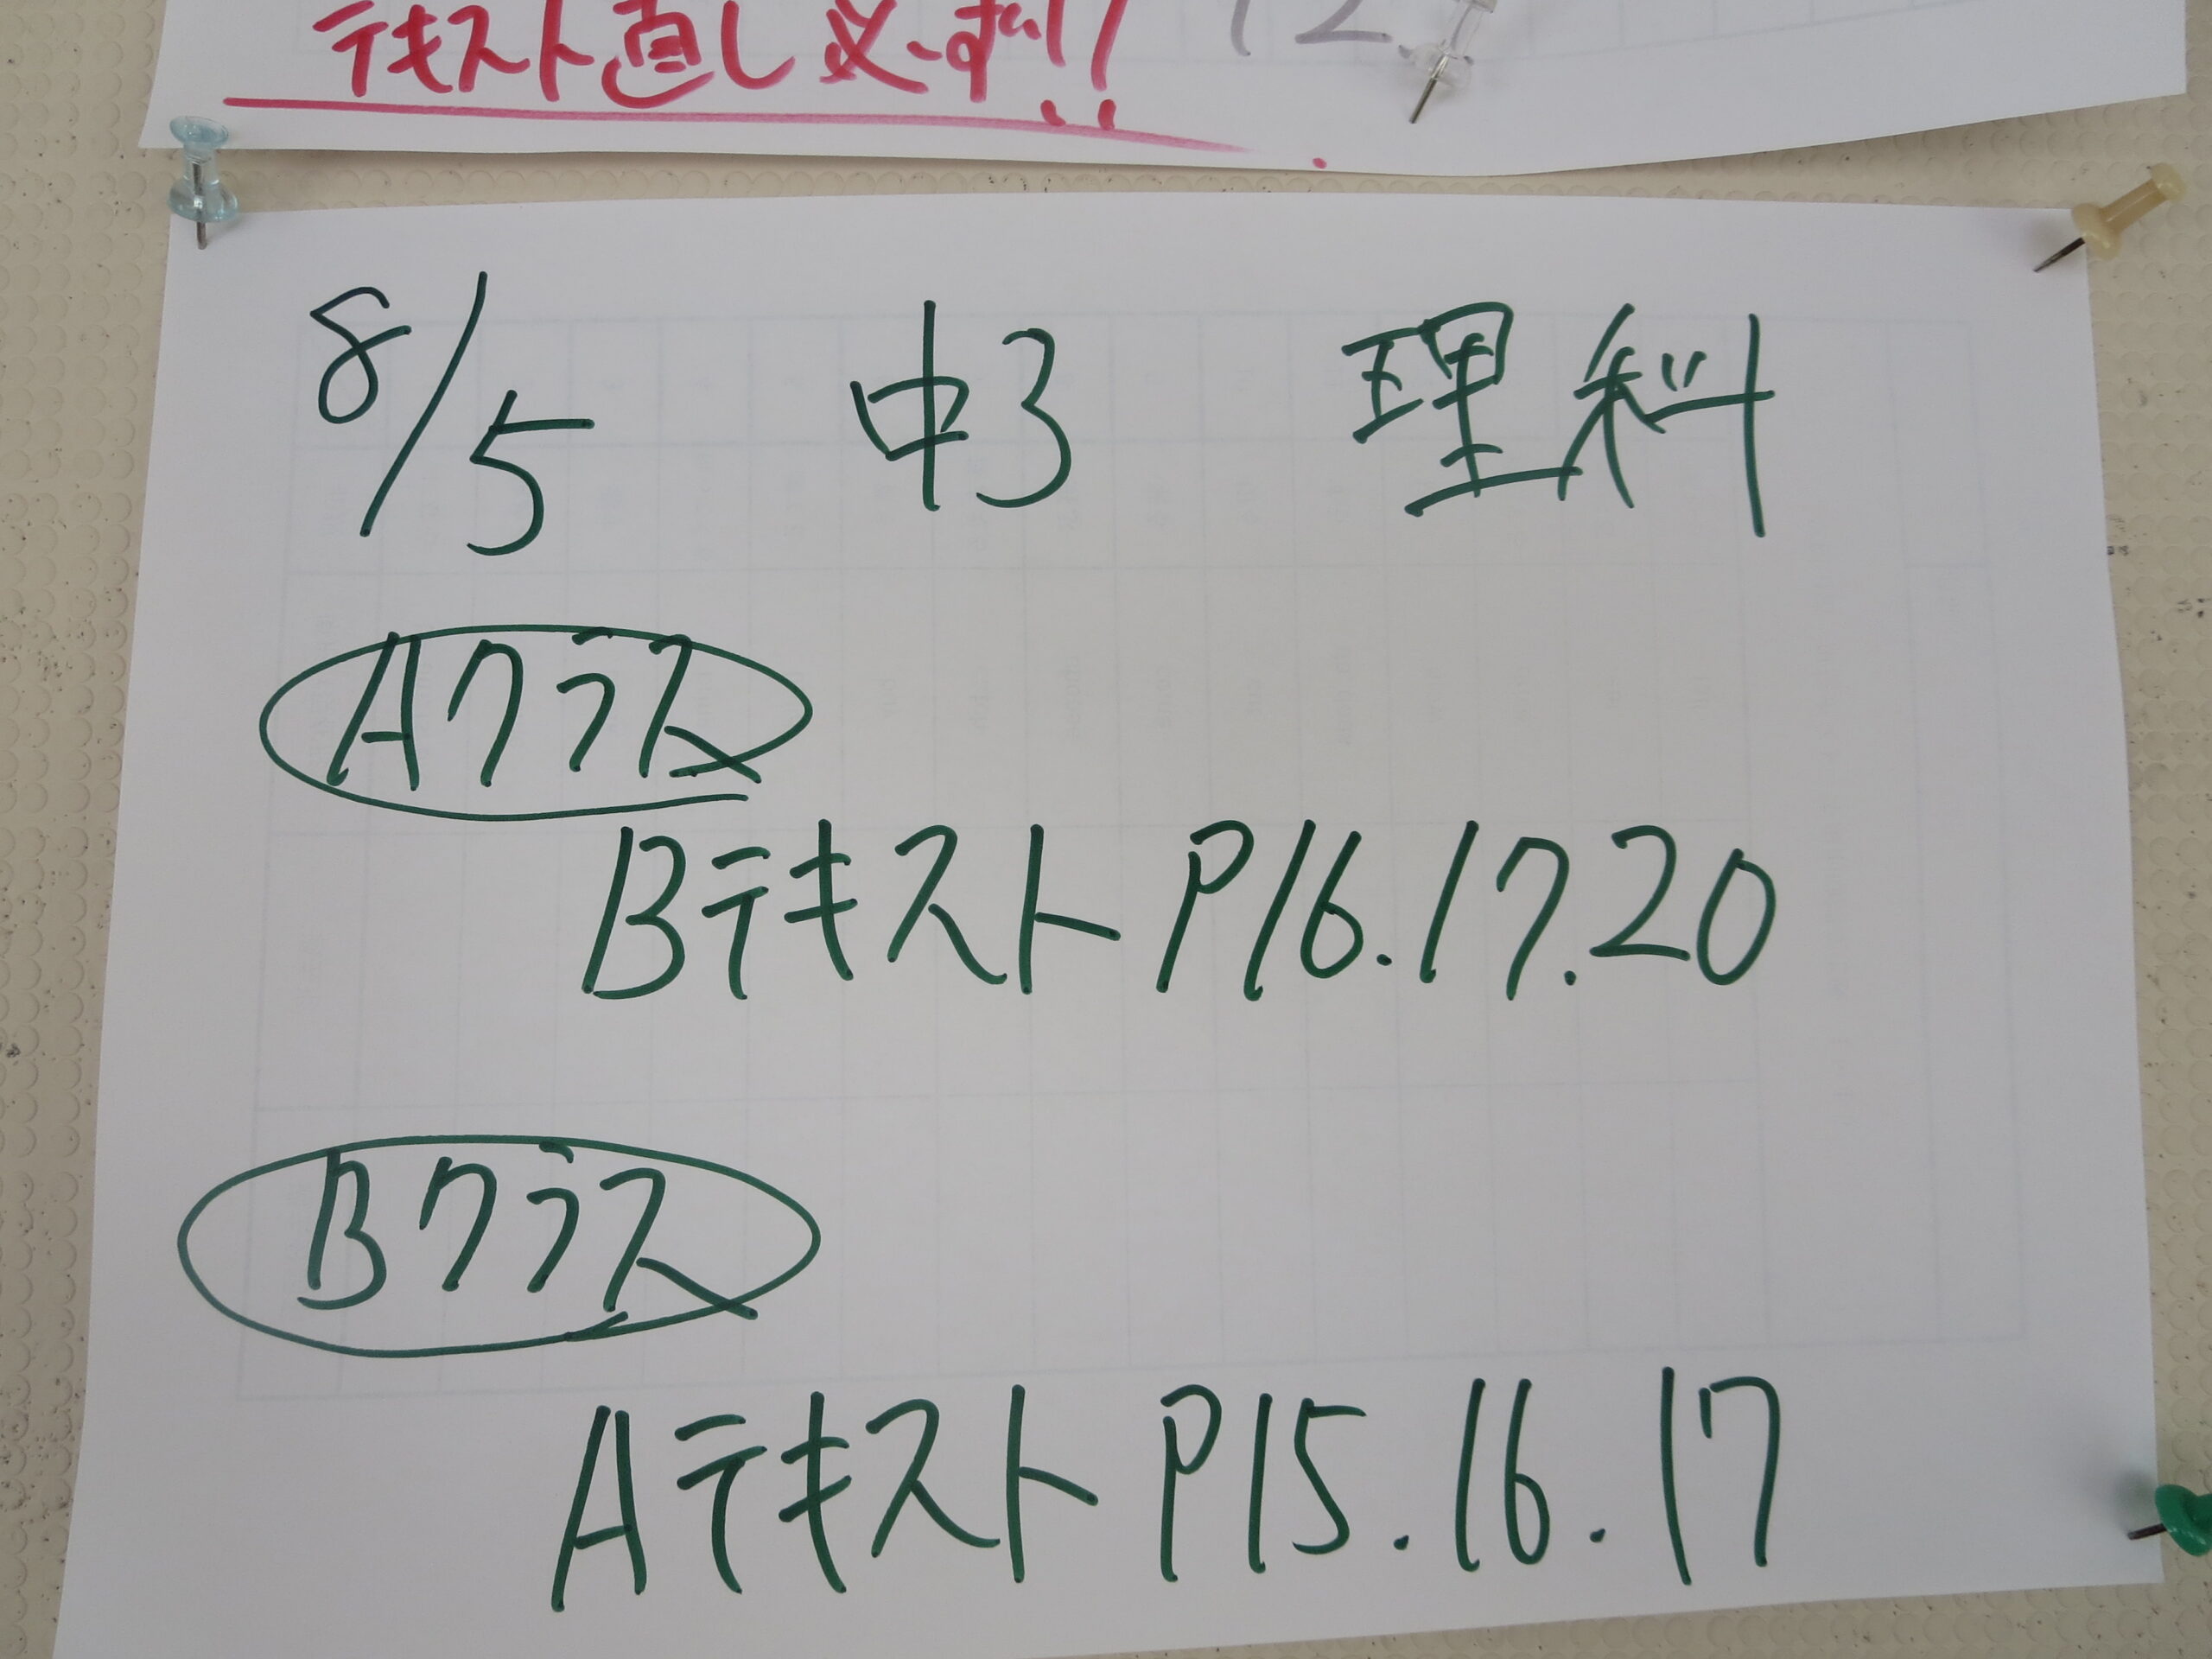 テキスト直し必ず!!
8/5 中3 理科
Aクラス
Bテキスト P16.17.20
Bクラス
Aテキスト P15.16.17